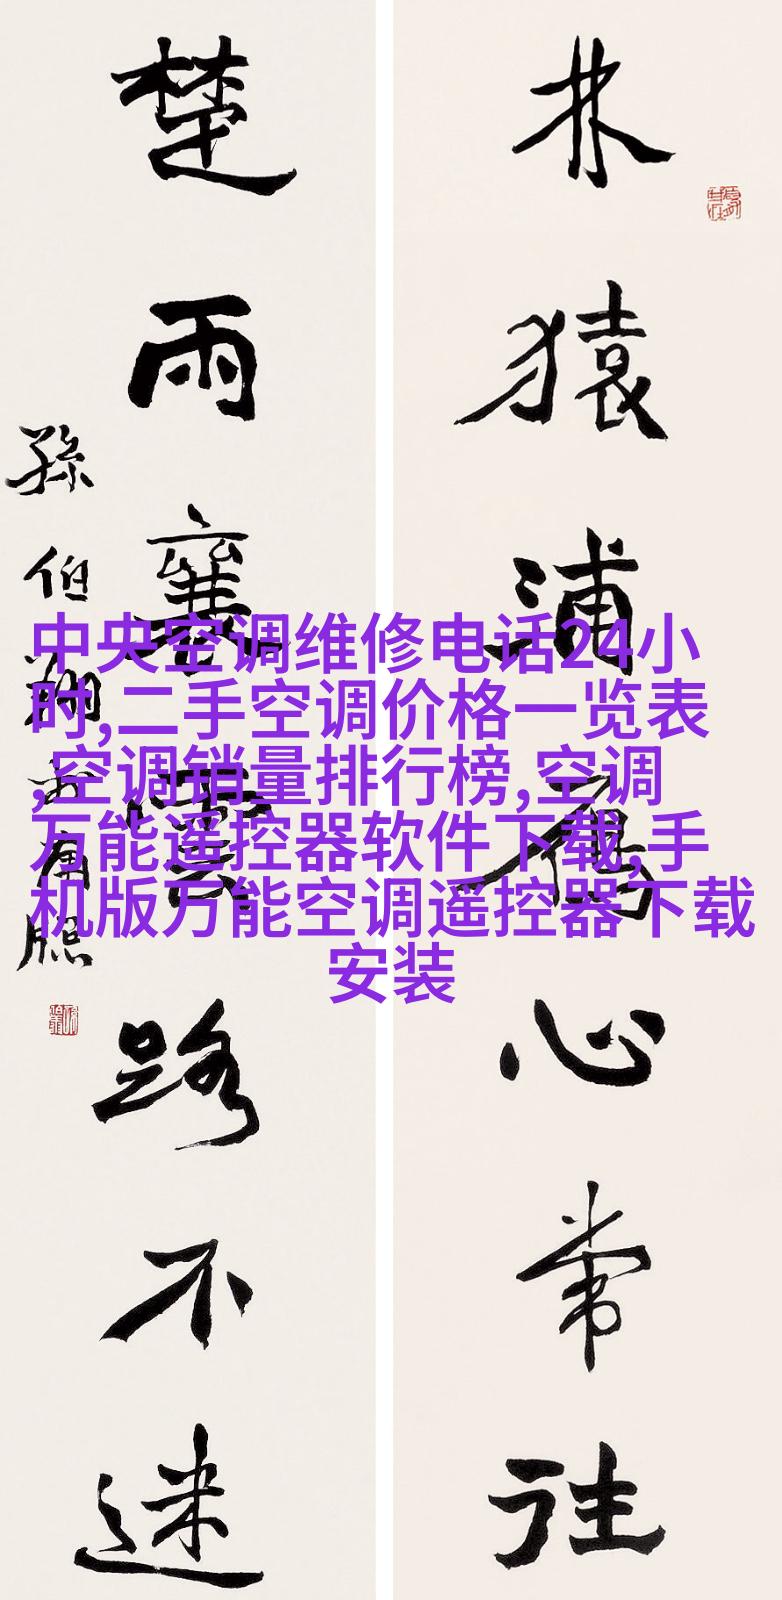 林猿浦心常往
楚雨襄雲路不迷
孫伯翔
中央空调维修电话24小
时,二手空调价格一览表
,空调销量排行榜,空调
万能遥控器软件下载,手
机版万能空调遥控器下载
安装